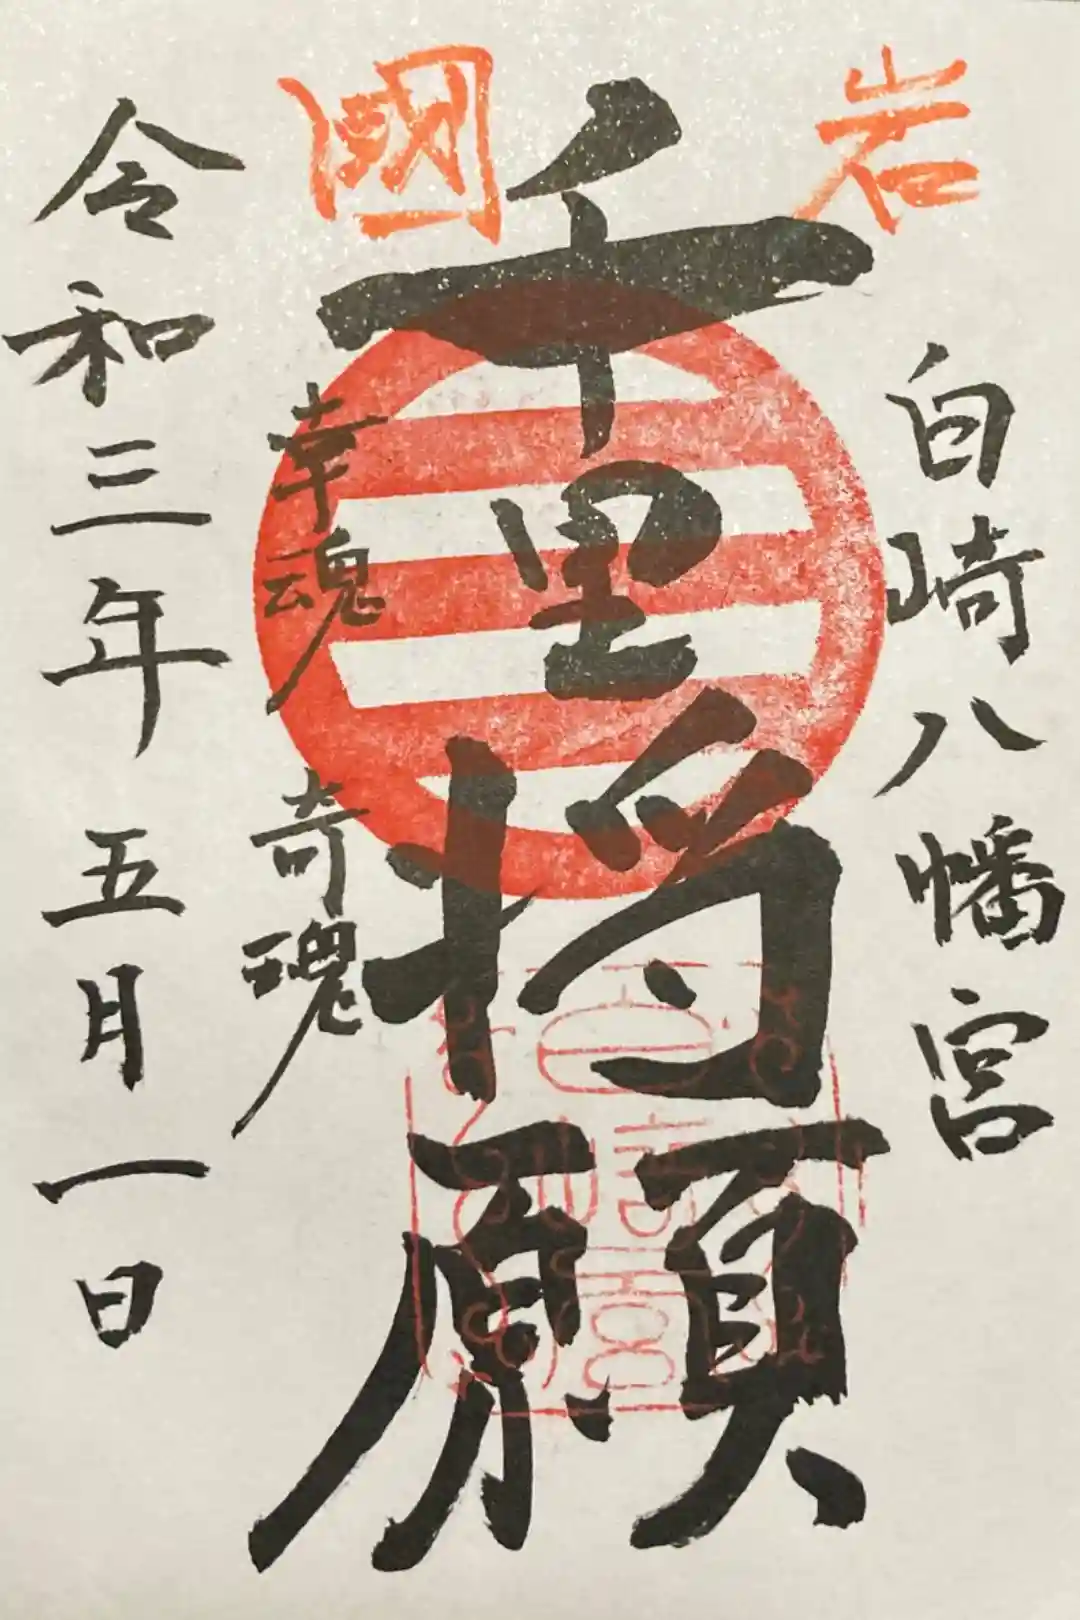 岩國
白崎八幡宮
千里将願
幸魂 奇魂
令和三年五月一日